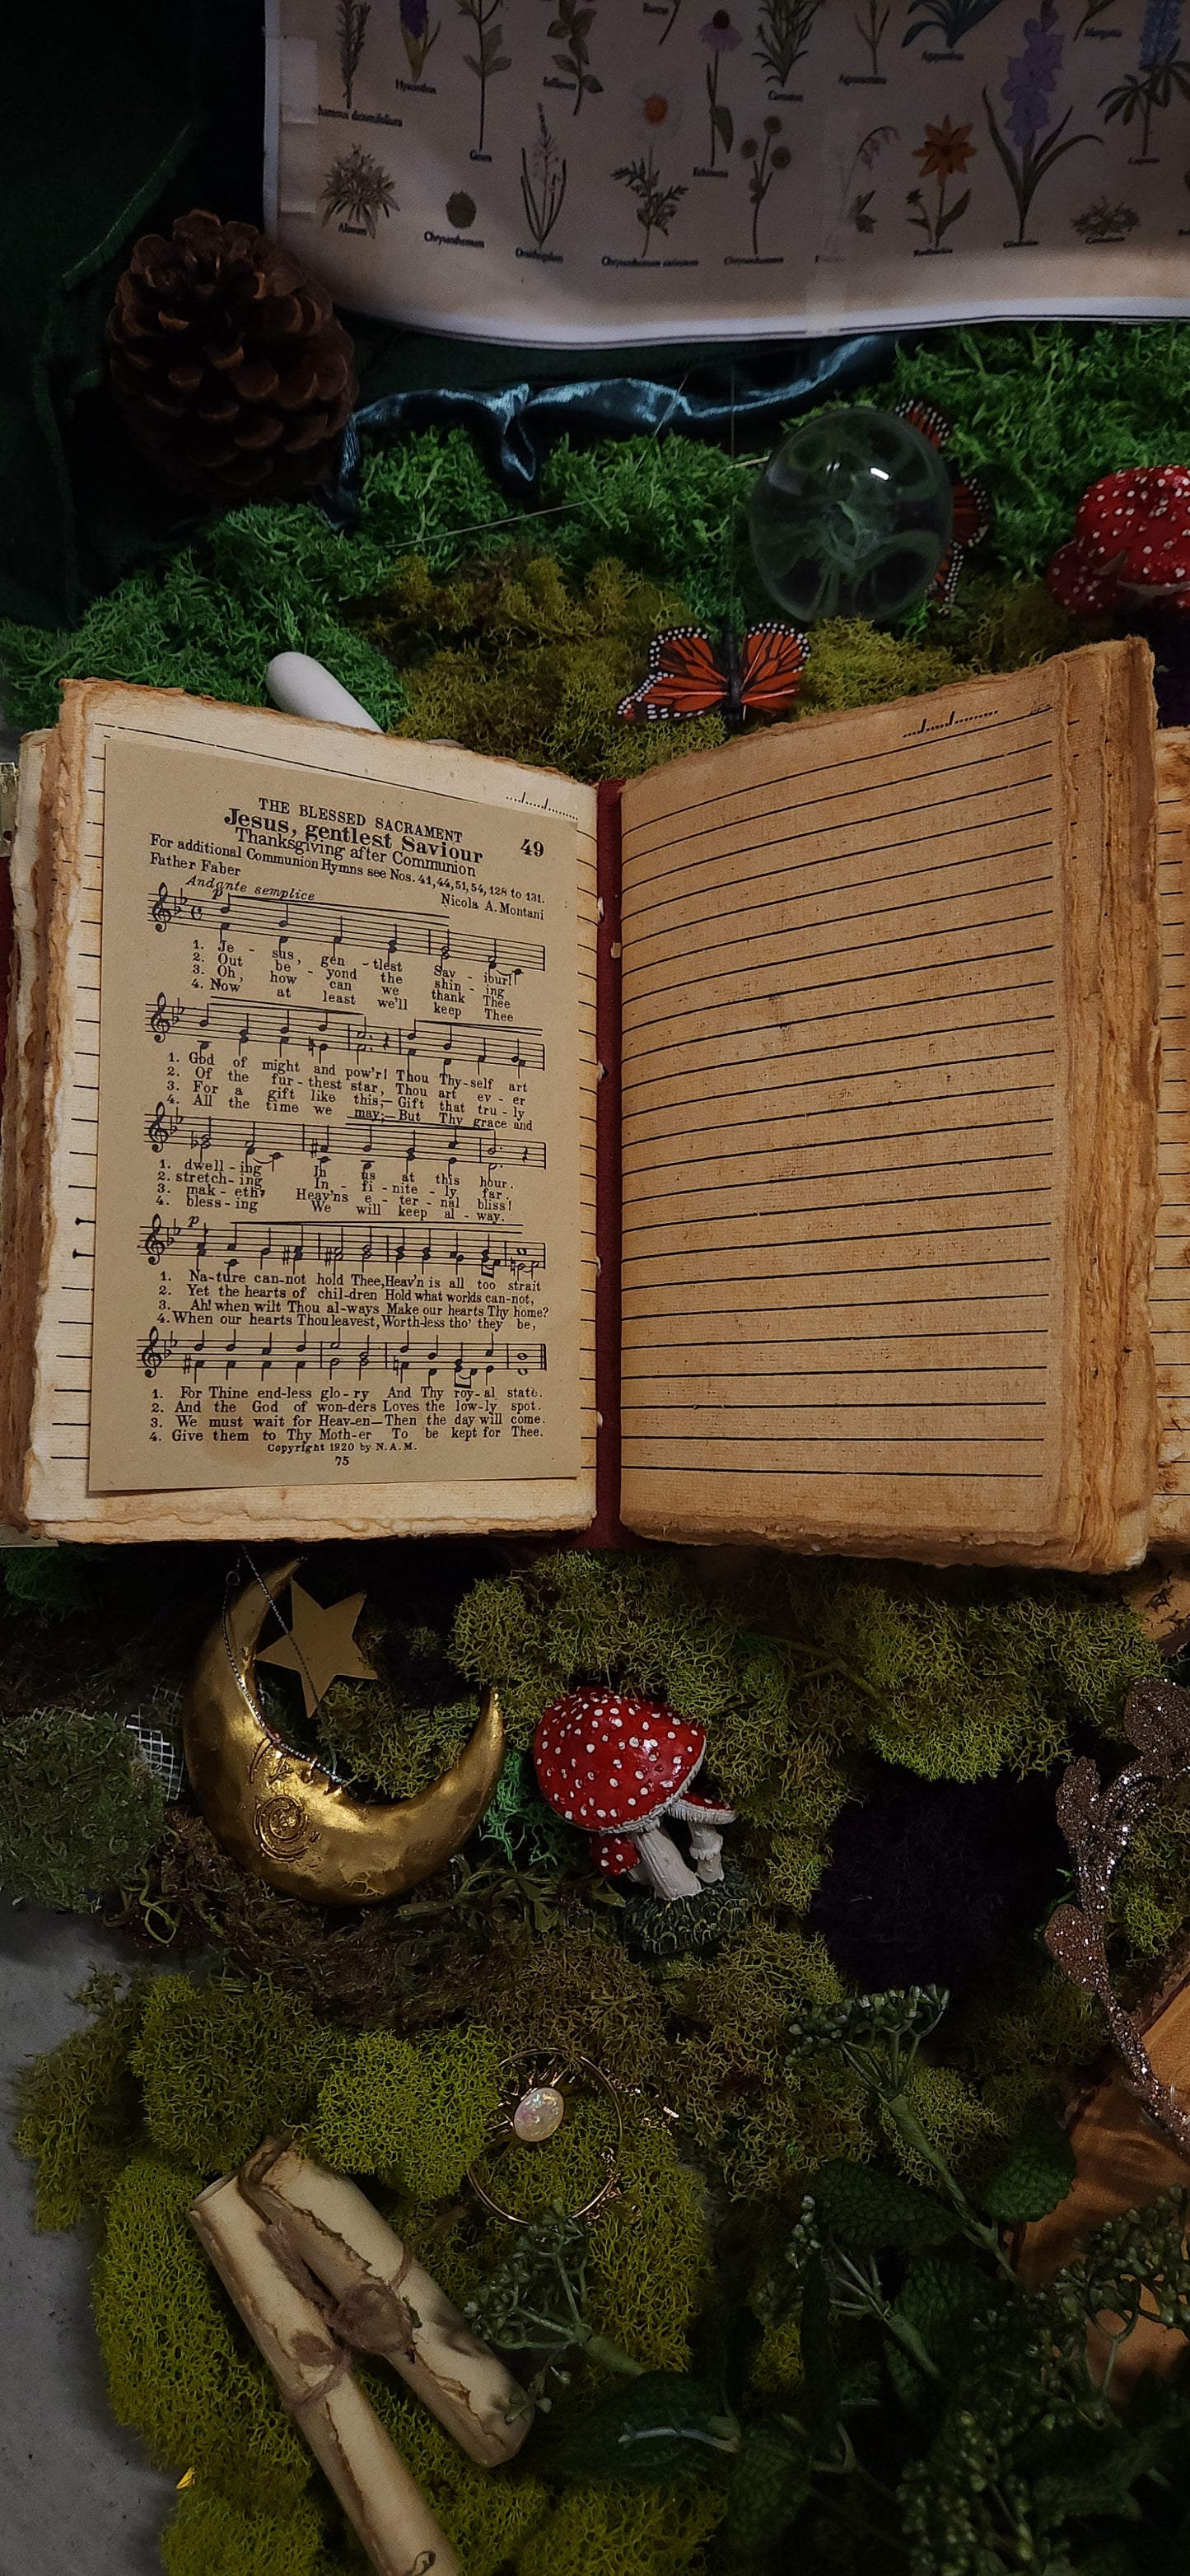 Hyacinthus
Safflower
Carnation
Agapanthus
Geum
Echinacea
Alisum
Chrysanthemum
Ornithogalum
Chrysanthemum
Rudbeckia
Gladiolus
THE BLESSED SACRAMENT
Jesus, gentlest Saviour 49
Thanksgiving after Communion
For additional Communion Hymns see Nos. 41, 44, 51, 54, 128 to 131.
Father Faber Nicola A. Montani
Andante semplice
p
1. Je - sus, gen - tlest Sav - iour!
2. Out be - yond the shin - ing
3. Oh, how can we thank Thee
4. Now at least we'll keep Thee
1. God of might and pow'r! Thou Thy-self art
2. Of the fur - thest star, Thou art ev - er
3. For a gift like this,— Gift that tru - ly
4. All the time we may;— But Thy grace and
1. dwell - ing In us at this hour.
2. stretch - ing In - fi - nite - ly far.
3. mak - eth, Heav'ns e - ter - nal bliss!
4. bless - ing We will keep al - way.
p
1. Na-ture can-not hold Thee, Heav'n is all too strait
2. Yet the hearts of chil-dren Hold what worlds can-not,
3. Ah! when wilt Thou al-ways Make our hearts Thy home?
4. When our hearts Thou leavest, Worth-less tho' they be,
1. For Thine end-less glo-ry And Thy roy-al state.
2. And the God of won-ders Loves the low-ly spot.
3. We must wait for Heav-en—Then the day will come.
4. Give them to Thy Moth-er To be kept for Thee.
Copyright 1920 by N.A.M.
75